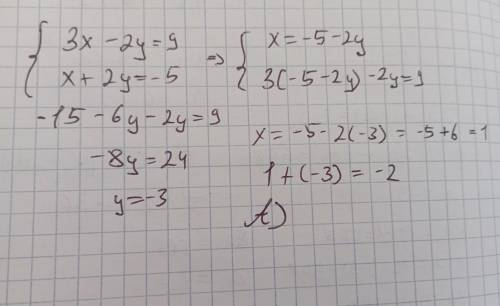 { 3x - 2y = 9 ⇒ { x = -5 - 2y
x + 2y = -5 3(-5 - 2y) - 2y = 9
-15 - 6y - 2y = 9
-8y = 24
y = -3
x = -5 - 2(-3) = -5 + 6 = 1
1 + (-3) = -2
A)